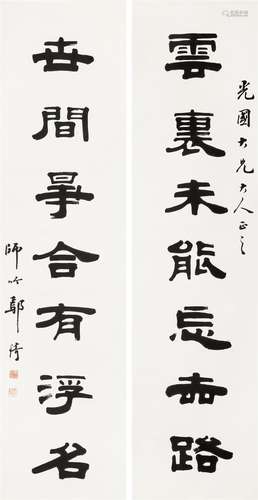 雲裏未能忘路
光國大兄大人正之
世間合有浮名
師